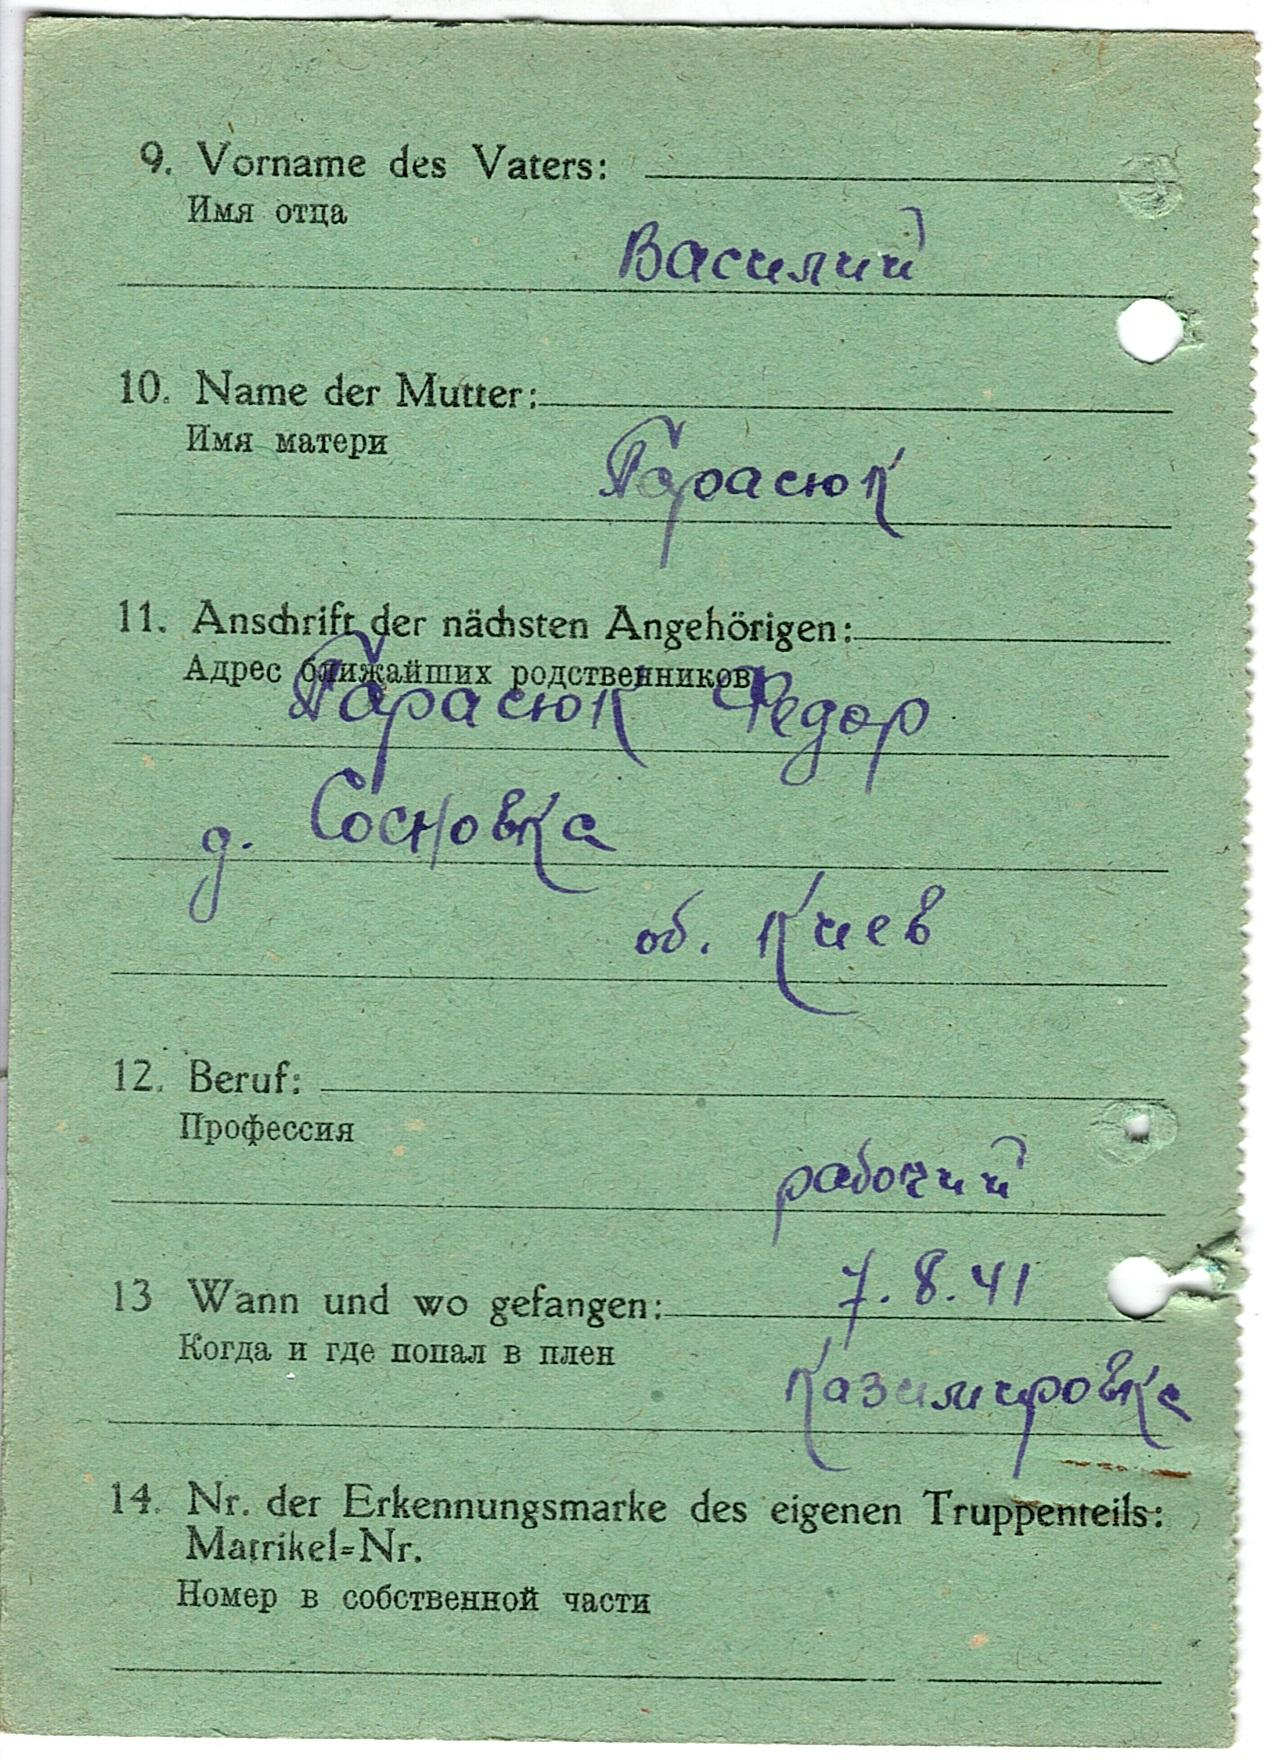 9. Vorname des Vaters:
Имя отца
Василий
10. Name der Mutter:
Имя матери
Тарасюк
11. Anschrift der nächsten Angehörigen:
Адрес ближайших родственников
Тарасюк Федор
д. Сосновка
об. Киев
12. Beruf:
Профессия
рабочий
13 Wann und wo gefangen: 7.8.41
Когда и где попал в плен
Казимировка
14. Nr. der Erkennungsmarke des eigenen Truppenteils:
Matrikel=Nr.
Номер в собственной части